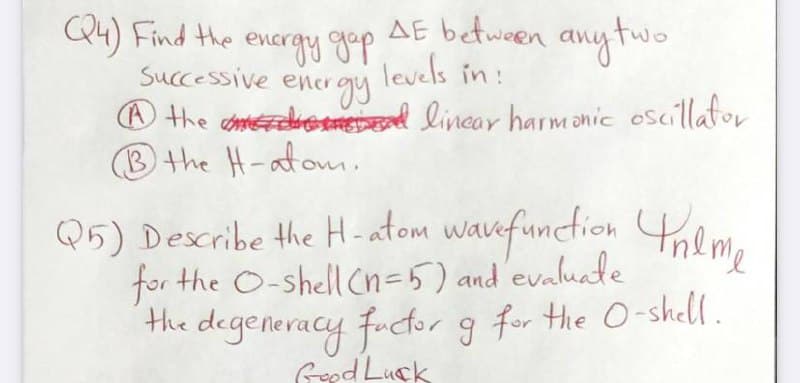 Q4) Find the energy gap ΔE between any two
Successive energy levels in :
Ⓐ the linear harmonic oscillator
Ⓑ the H-atom.
Q5) Describe the H-atom wavefunction Ψnlmₗ
for the O-shell (n=5) and evaluate
the degeneracy factor g for the O-shell.
Good Luck